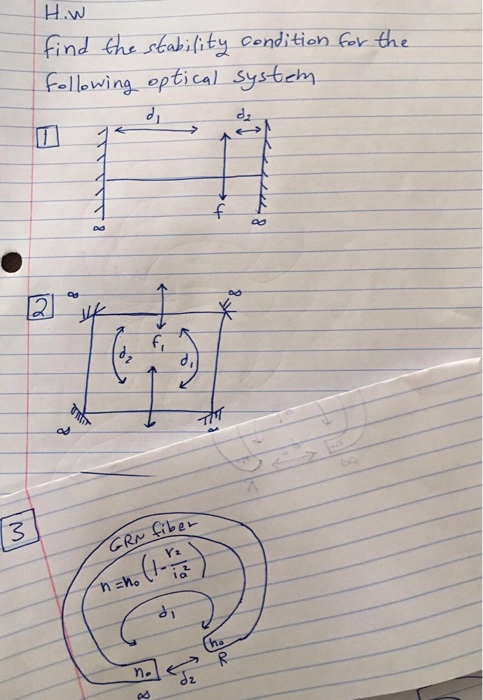 H.W
find the stability condition for the
following optical system
1
d₁ d₂
f
∞ ∞
2
∞ ∞
f₁
d₂ d₁
∞ ∞
3
GRN fiber
n=n₀(1-r²/
d₁
n₀
n₀ R
d₂
∞